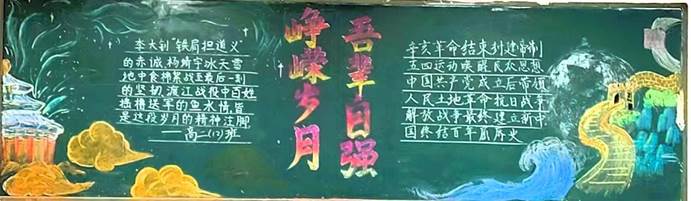 李大钊"铁肩担道义"
的赤诚杨靖宇冰天雪
地中食棉絮战至最后一刻
的坚韧渡江战役中百姓
摇橹送军的鱼水情皆
是这段岁月的精神注脚
——高二(12)班
峥嵘岁月
吾辈自强
辛亥革命结束封建帝制
五四运动唤醒民众思想
中国共产党成立后带领
人民土地革命抗日战争
解放战争最终建立新中
国终结百年屈辱史